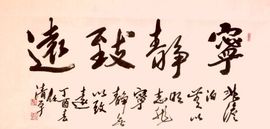 寧靜致遠
非澹
泊無以
明志非
寧靜無
以致
遠
丁酉春